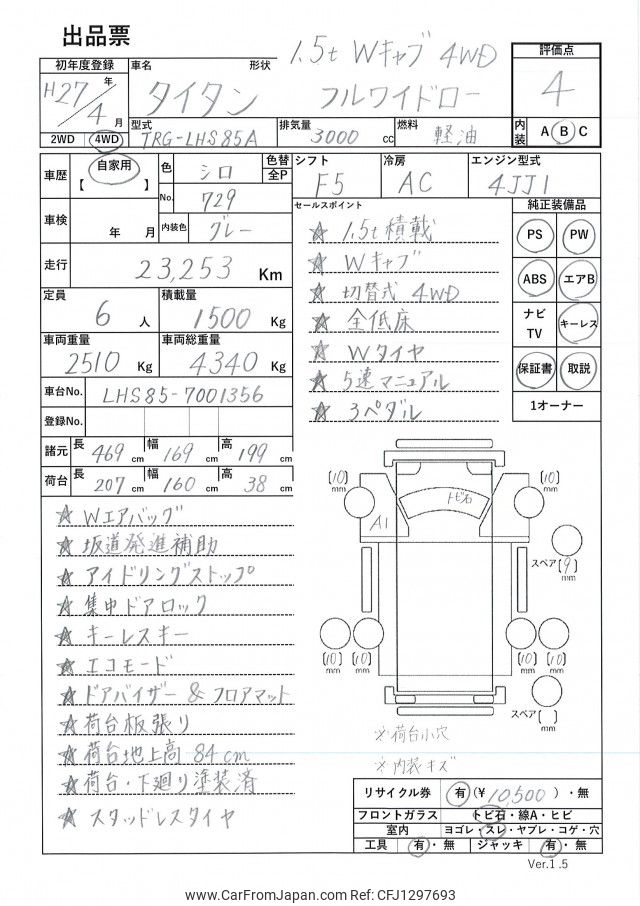 出品票
1.5t Wキャブ 4WD
フルワイドロー
初年度登録
H27年/4月
2WD 4WD
車名 形状
タイタン
評価点
4
型式
TRG-LHS85A
排気量
3000 cc
燃料
軽油
内装
A B C
車歴
自家用
【 】
色
シロ
色替
全P
No.
729
内装色
グレー
シフト
F5
冷房
AC
エンジン型式
4JJ1
車検
年 月
走行
23,253 Km
定員
6 人
積載量
1500 Kg
車両重量
2510 Kg
車両総重量
4340 Kg
車台No.
LHS85-7001356
登録No.
諸元 長 469 cm 幅 169 cm 高 199 cm
荷台 長 207 cm 幅 160 cm 高 38 cm
セールスポイント
☆ 1.5t積載
☆ Wキャブ
☆ 切替式 4WD
☆ 全低床
☆ Wタイヤ
☆ 5速マニュアル
☆ 3ペダル
純正装備品
PS PW
ABS エアB
ナビTV キーレス
保証書 取説
1オーナー
☆ Wエアバッグ
☆ 坂道発進補助
☆ アイドリングストップ
☆ 集中ドアロック
☆ キーレスキー
☆ エコモード
☆ ドアバイザー & フロアマット
☆ 荷台板張り
☆ 荷台地上高 84cm
☆ 荷台・下廻り塗装済
☆ スタッドレスタイヤ
[10] mm
[10] mm
トビ石
A1
スペア [9] mm
[10] mm [10] mm
[10] mm [10] mm
スペア [ ] mm
※荷台小穴
※内装キズ
リサイクル券 有 (¥ 10,500 )・無
フロントガラス トビ石・線A・ヒビ
室内 ヨゴレ・スレ・ヤブレ・コゲ・穴
工具 有・無 ジャッキ 有・無
Ver.1.5
www.CarFromJapan.com Ref:CFJ1297693